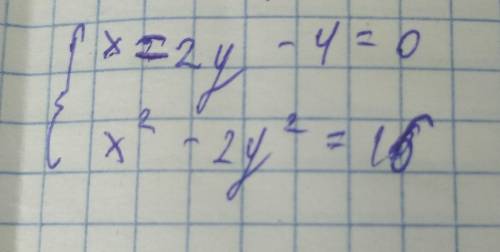 x - 2y - 4 = 0
x² - 2y² = 16